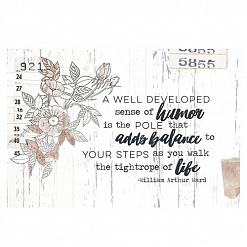 5855
5855
921
24
26
32
35
38
40
45
A WELL DEVELOPED
sense of humor
is the POLE that
adds balance to
YOUR STEPS as you walk
the tightrope of life
-William Arthur Ward